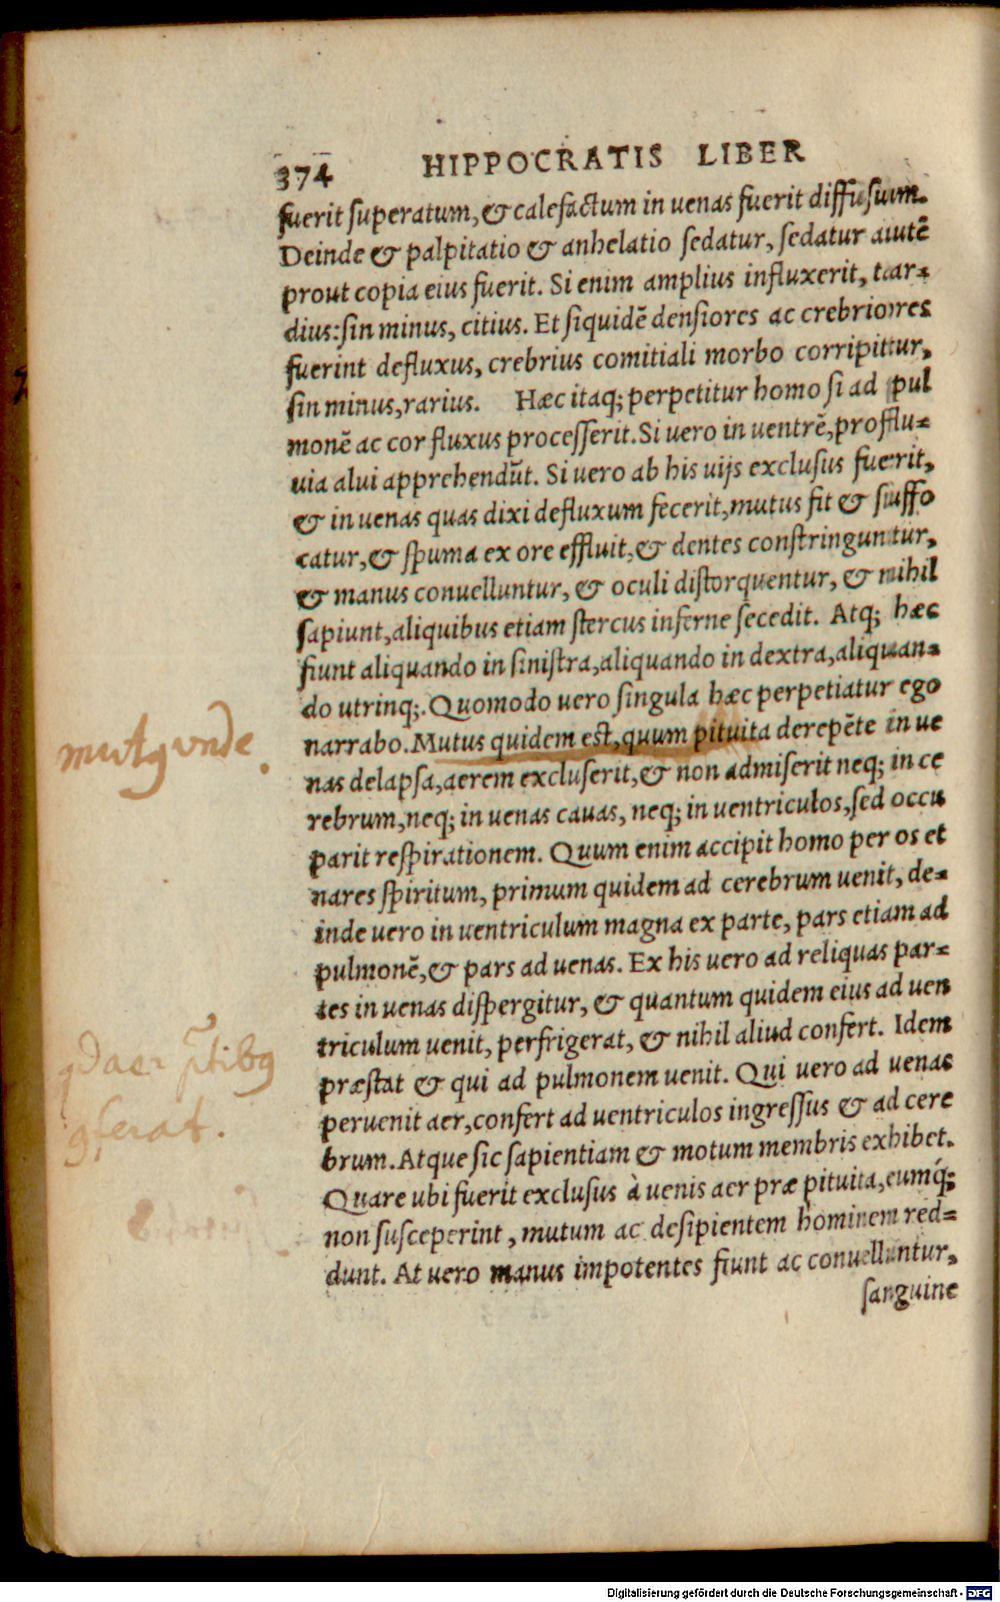 374 HIPPOCRATIS LIBER
fuerit superatum, & calefactum in uenas fuerit diffusum.
Deinde & palpitatio & anhelatio sedatur, sedatur autẽ
prout copia eius fuerit. Si enim amplius influxerit, tar=
dius: sin minus, citius. Et siquidẽ densiores ac crebriores
fuerint defluxus, crebrius comitiali morbo corripitur,
sin minus, rarius. Hæc itaq; perpetitur homo si ad pul
monẽ ac cor fluxus processerit. Si uero in uentrẽ, proflu=
uia alui apprehendũt. Si uero ab his uijs exclusus fuerit,
& in uenas quas dixi defluxum fecerit, mutus fit & suffo
catur, & spuma ex ore effluit, & dentes constringuntur,
& manus conuelluntur, & oculi distorquentur, & nihil
sapiunt, aliquibus etiam stercus inferne secedit. Atq; hæc
fiunt aliquando in sinistra, aliquando in dextra, aliquan=
do utrinq;. Quomodo uero singula hæc perpetiatur ego
narrabo. Mutus quidem est, quum pituita derepẽte in ue
nas delapsa, aerem excluserit, & non admiserit neq; in ce
rebrum, neq; in uenas cauas, neq; in uentriculos, sed occu
parit respirationem. Quum enim accipit homo per os et
nares spiritum, primum quidem ad cerebrum uenit, de=
inde uero in uentriculum magna ex parte, pars etiam ad
pulmonẽ, & pars ad uenas. Ex his uero ad reliquas par=
tes in uenas dispergitur, & quantum quidem eius ad uen
triculum uenit, perfrigerat, & nihil aliud confert. Idem
præstat & qui ad pulmonem uenit. Qui uero ad uenas
peruenit aer, confert ad uentriculos ingressus & ad cere
brum. Atque sic sapientiam & motum membris exhibet.
Quare ubi fuerit exclusus à uenis aer præ pituita, eumq́;
non susceperint, mutum ac desipientem hominem red=
dunt. At uero manus impotentes fiunt ac conuelluntur,
sanguine
unde.
aer
Digitalisierung gefördert durch die Deutsche Forschungsgemeinschaft - DFG